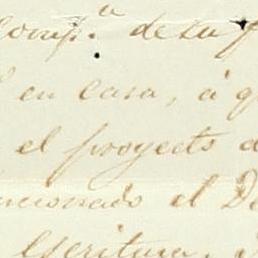 comp.ª de la f
en casa, á q
el proyecto d
ncionado el De
escritura,